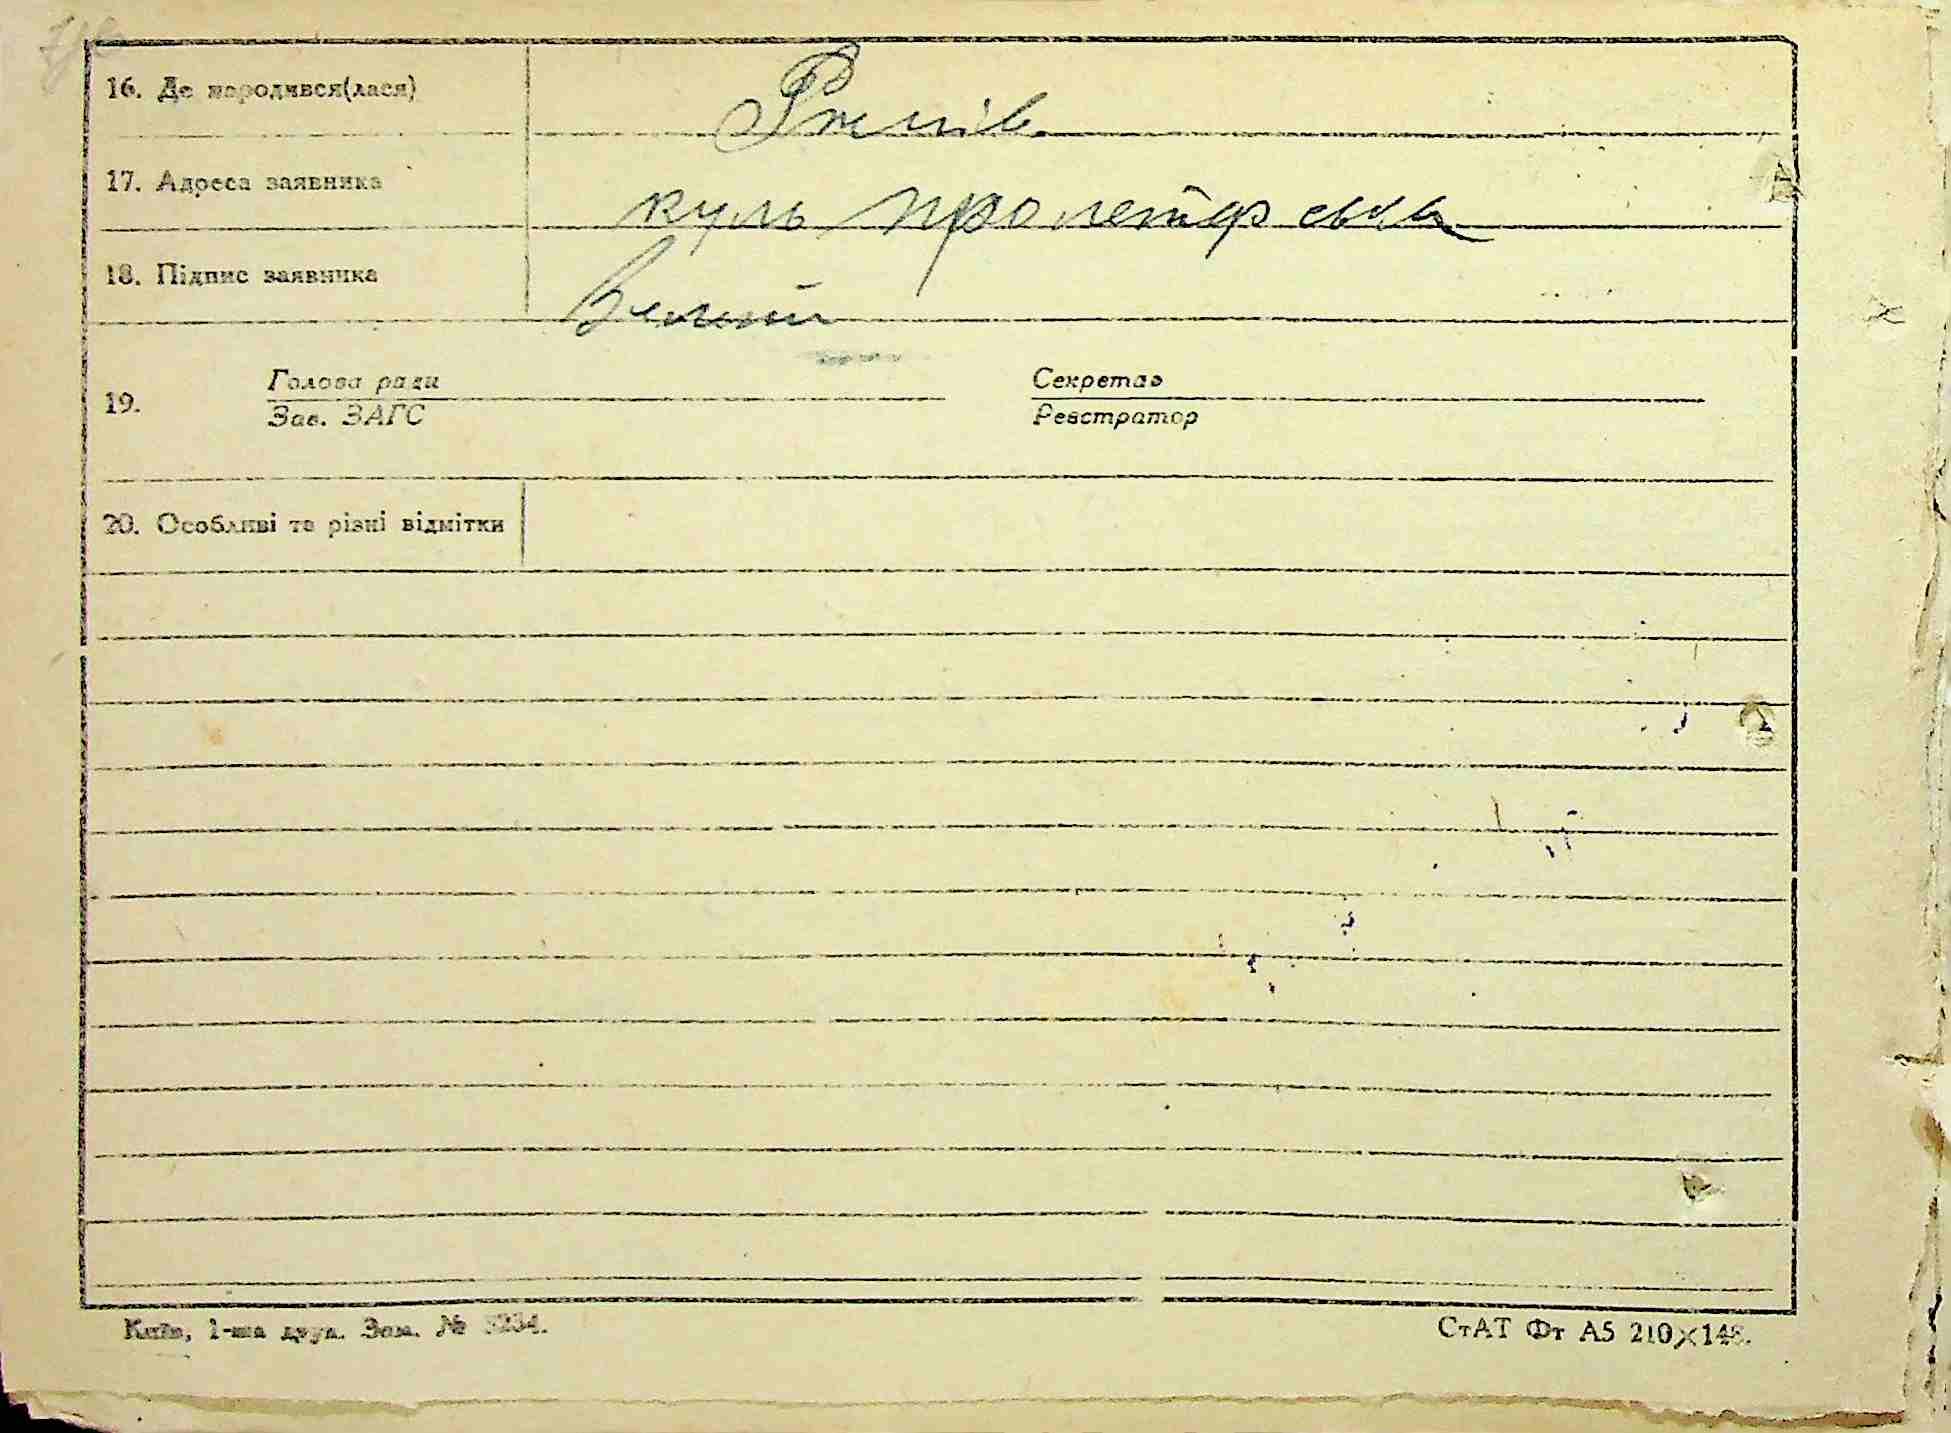 16. Де народився(лася) Ржепів
17. Адреса заявника куль пролетарська
18. Підпис заявника
19. Голова ради Секретар
Зав. ЗАГС Реєстратор
20. Особливі та різні відмітки
Київ, 1-ша друк. Зам. № 5234.
СтАТ Фт А5 210×148.